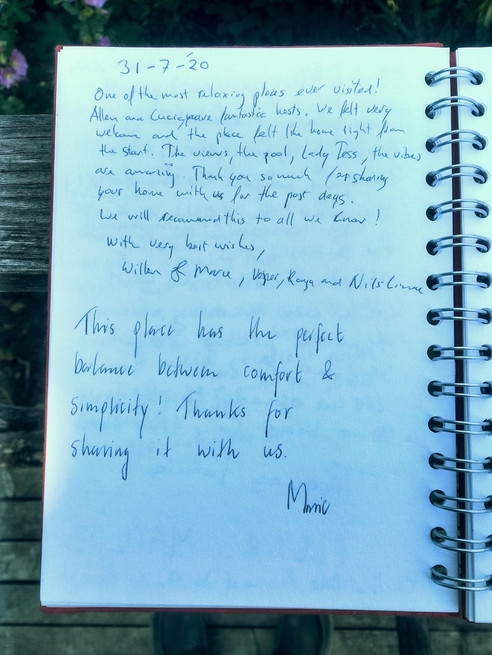 31-7-'20
One of the most relaxing places ever visited!
Allen are fantastic hosts. We felt very
welcome and the place felt like home right from
the start. The views, the pool, Lady Tess, the vibes
are amazing. Thank you so much for sharing
your home with us for the past days.
We will recommend this to all we know!
With very best wishes,
Willem & Marie, and Nils
This place has the perfect
balance between comfort &
simplicity! Thanks for
sharing it with us.
Marie